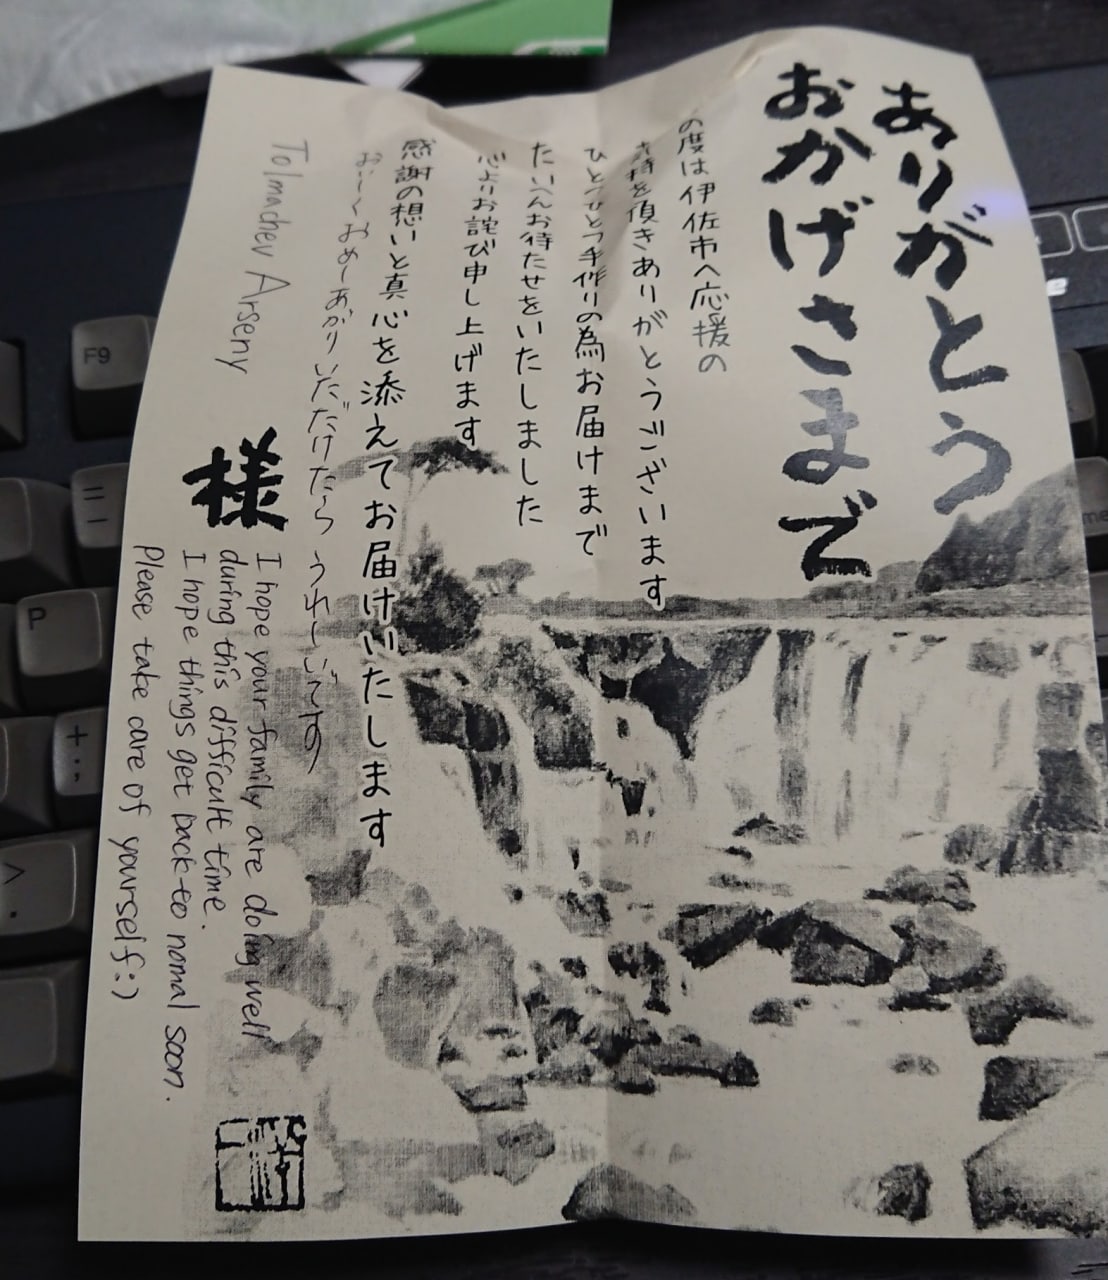 ありがとう
おかげさまで
の度は伊佐市へ応援の
持を頂きありがとうございます
ひとつひとつ手作りの為お届けまで
たいへんお待たせをいたしました
心よりお詫び申し上げます
感謝の想いと真心を添えてお届けいたします
おいしくおめしあがりいただけたら うれしいです
Tolmachev Arseny
様
I hope your family are doing well
during this difficult time.
I hope things get back to nomal soon.
Please take care of yourself:)
F9
P